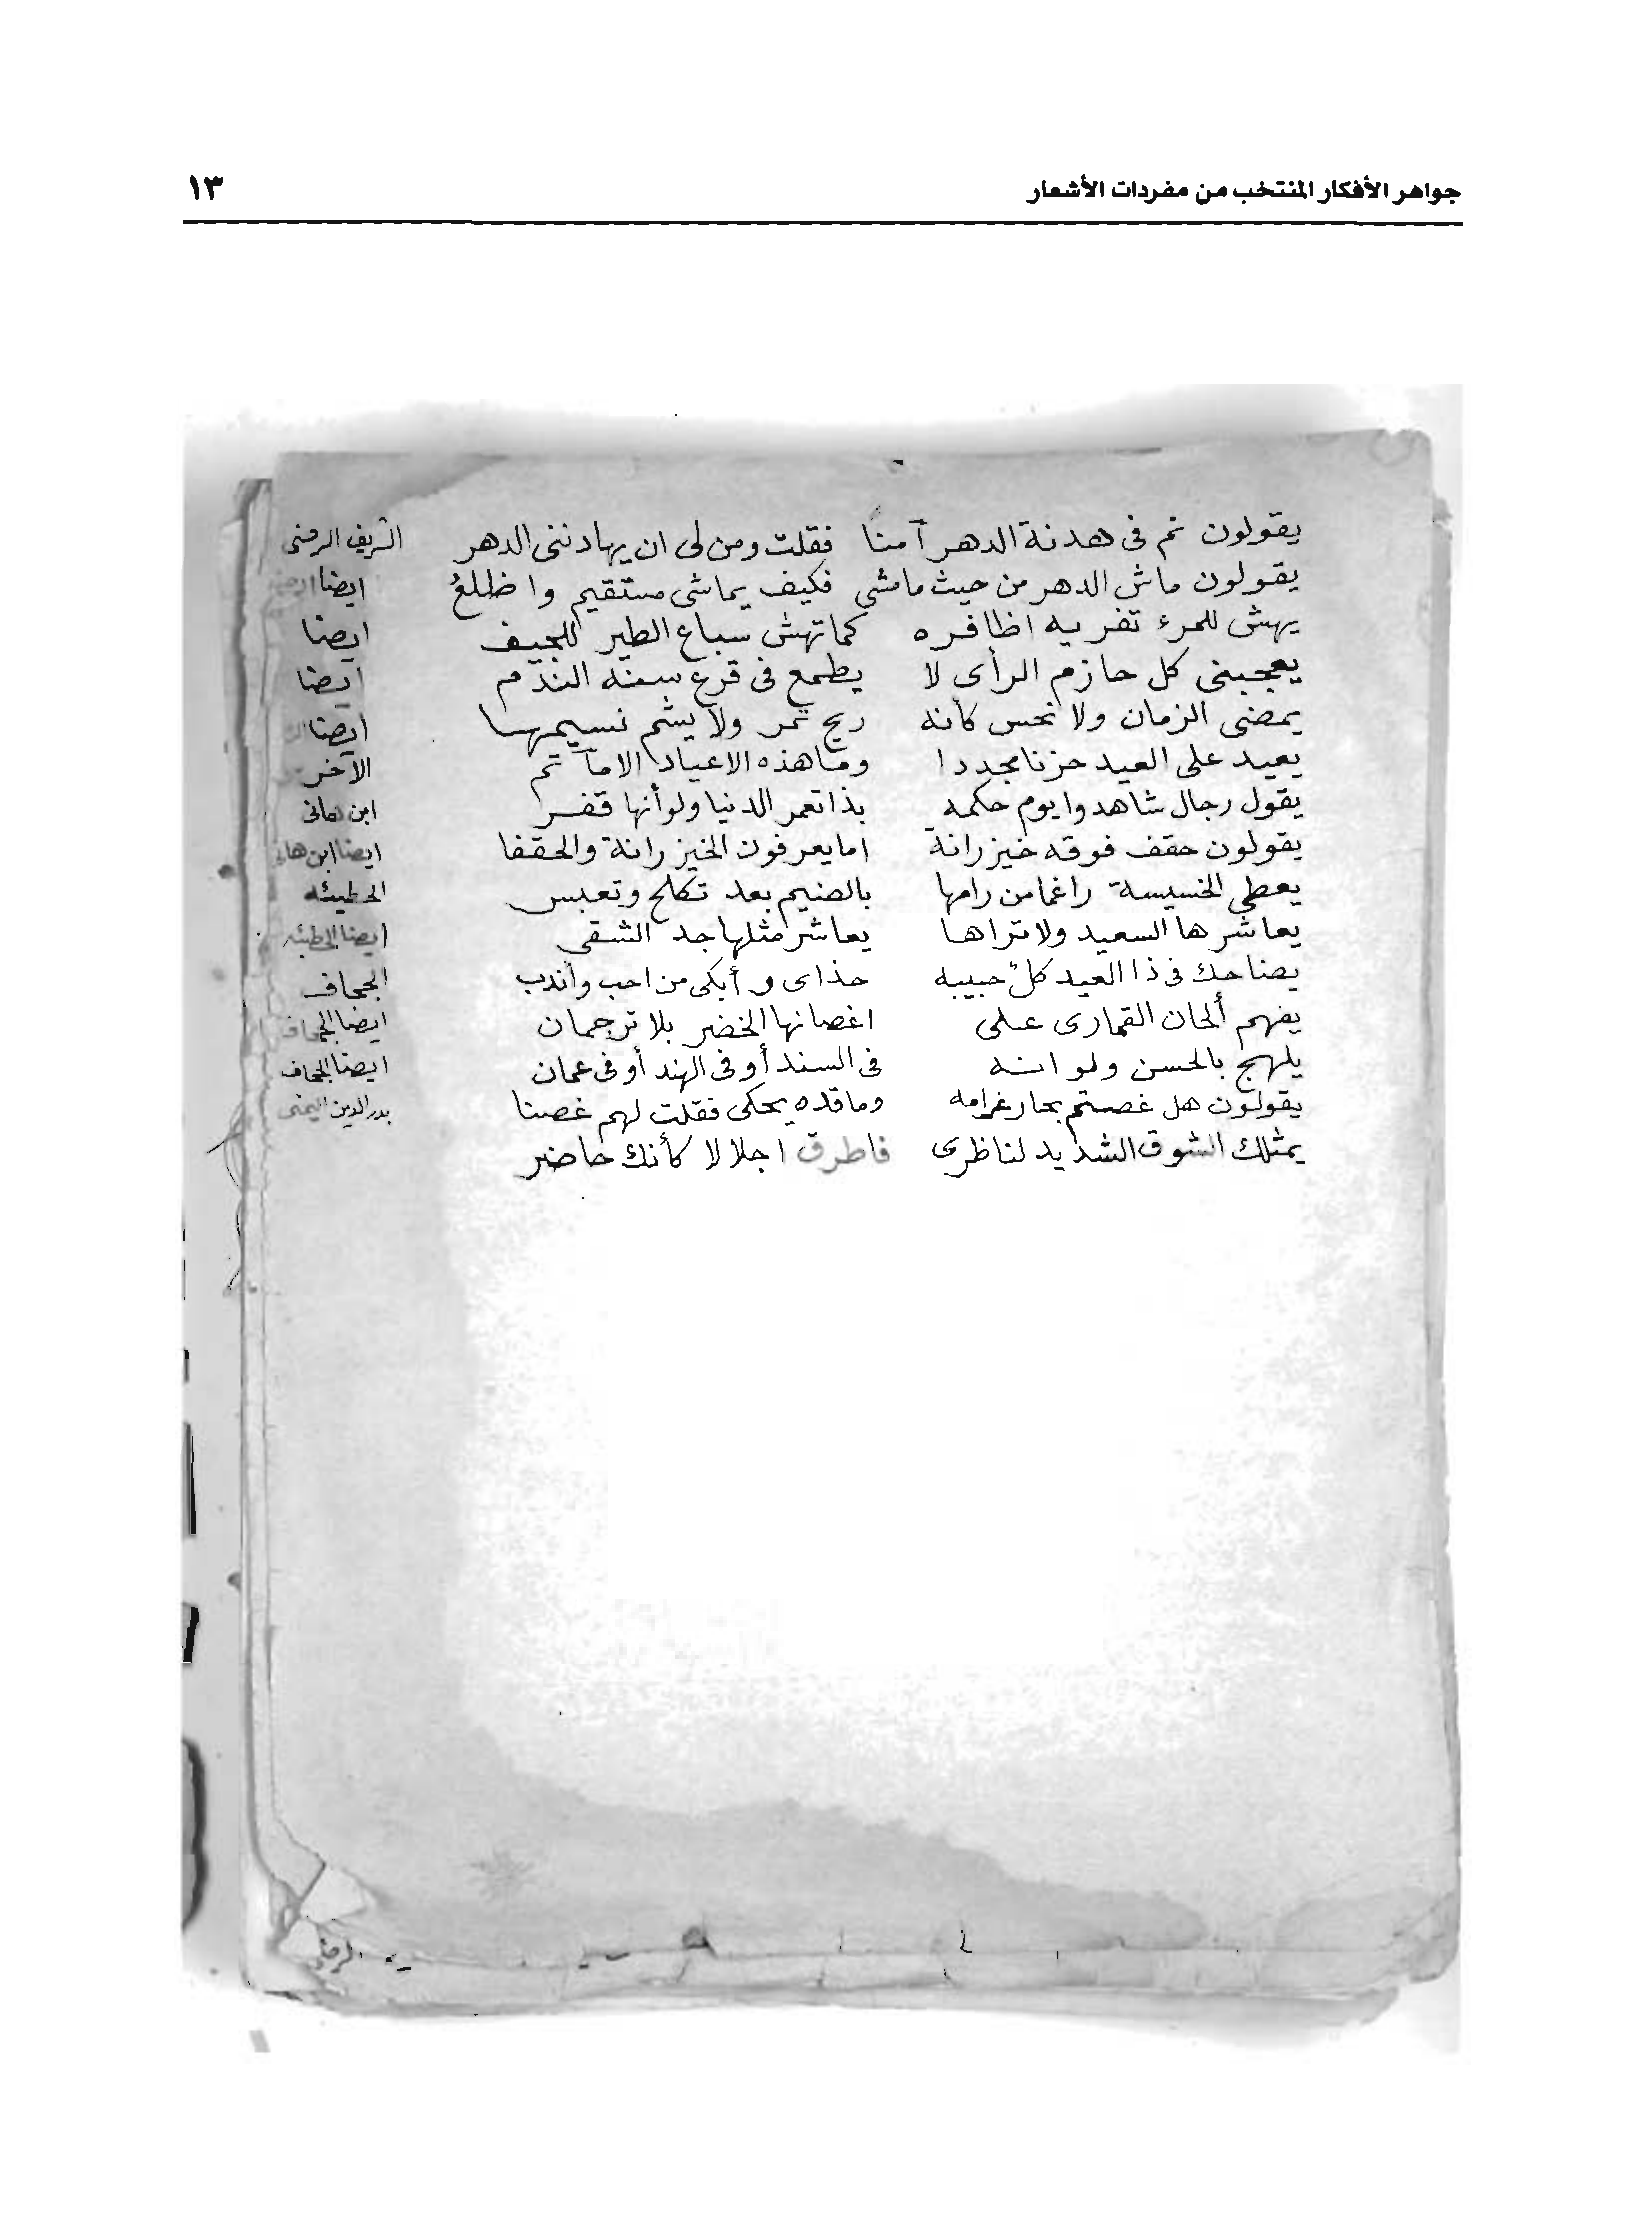 جواهر الأفكار المنتخب من مفردات الأشعار ١٣
يقولون نم فى هدنة الدهر آمنا فقلت ومن لى ان يهادننى الدهر الشريف الرضى
يقولون ماش الدهر من حيث ما مشى فكيف يماشى مستقيم واظلع ايضا
يهش للمرء تفريه اظافره كما تهش سباع الطير للجيف ايضا
يعجبنى كل حازم الرأى لا يطمع فى قرع سنه الندم ايضا
يمضى الزمان ولا نحس كأنه ريح تمر ولا يشم نسيمها ايضا
يعيد على العيد حزنا مجددا وما هذه الاعياد الا مآتم الآخر
يقول رجال شاهدوا يوم حكمه بذا تعمر الدنيا ولو أنها قفر ابن هانى
يقولون حقف فوقه خيزرانة اما يعرفون الخيزرانة والحقفا ايضا ابن هانى
يعطى الخسيسة راغما من رامها بالضيم بعد تكلح وتعبس الحطيئه
يعاشرها السعيد ولا تراها يعاشر مثلها جد الشقى ايضا الحطيئه
يضاحك فى ذا العيد كل حبيبه حذاى و أبكى من احب وأندب الجحاف
يفهم ألحان القمارى على اغصانها الخضر بلا ترجمان ايضا الجحاف
يلهج بالحسن ولو انه فى السند أو فى الهند أو فى عمان ايضا الجحاف
يقولون هل غصتم بحار غرامه وما قده يحكى فقلت لهم غصنا بدر الدين اليمنى
يمثلك الشوق الشديد لناظرى فاطرق اجلالا كأنك حاضر